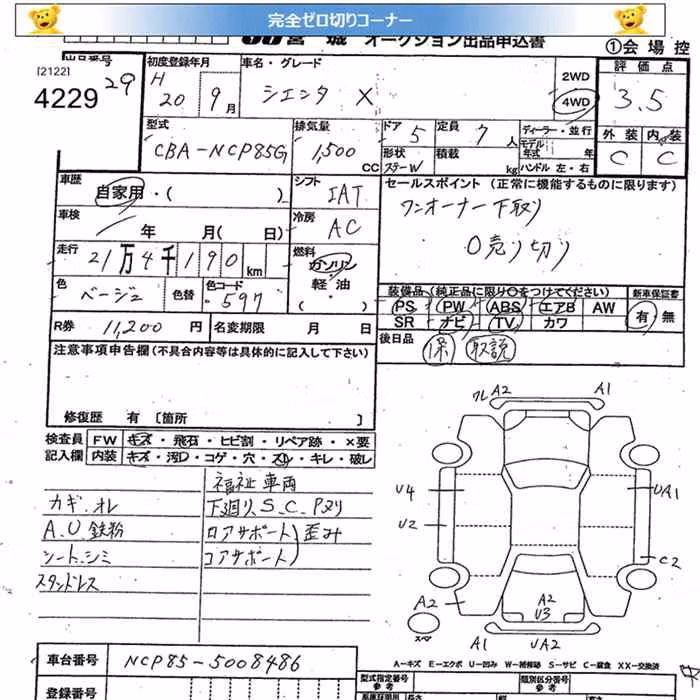 完全ゼロ切りコーナー
宮城 オークション出品申込書
①会場控
出品番号
[2122]
4229
29
初度登録年月
H 20年 9月
車名・グレード
シエンタ X
2WD
4WD
評価点
3.5
型式
CBA-NCP85G
排気量
1,500 CC
ドア 5
定員 7人
ディーラー・並行
形状 ステーW
積載 kg
モデル年式 年
ハンドル 左・右
外装 内装
C C
車歴
自家用・( )
シフト
IAT
セールスポイント (正常に機能するものに限ります)
ワンオーナー下取り
0売り切り
車検
年 月( 日)
冷房
AC
走行
21万4千190km
燃料
ガソリン
軽油
( )
色
ベージュ
色替
色コード
597
装備品 (純正品に限り○をつけてください)
新車保証書
PS PW ABS エアB AW
SR ナビ TV カワ
有 無
R券 11,200円
名変期限 月 日
後日品
保 取説
注意事項申告欄 (不具合内容等は具体的に記入して下さい)
修復歴 有 [箇所 ]
検査員記入欄
FW キズ・飛石・ヒビ割・リペア跡・×要
内装 キズ・汚レ・コゲ・穴・スレ・キレ・破レ
福祉車両
カギ.オレ
下廻り、S.C.Pヌリ
A.U鉄粉
ロアサポート
歪み
シート.シミ
コアサポート
スタンドレス
クレ A2
A1
U4
UA1
U2
C2
A2
A2
U3
スペア
A1
UA2
A-キズ E-エクボ U-凹み W-補修跡 S-サビ C-腐食 XX-交換済
車台番号
NCP85-5008486
型式指定番号
参考
類別区分番号
参考
登録番号
長さ
幅
高さ